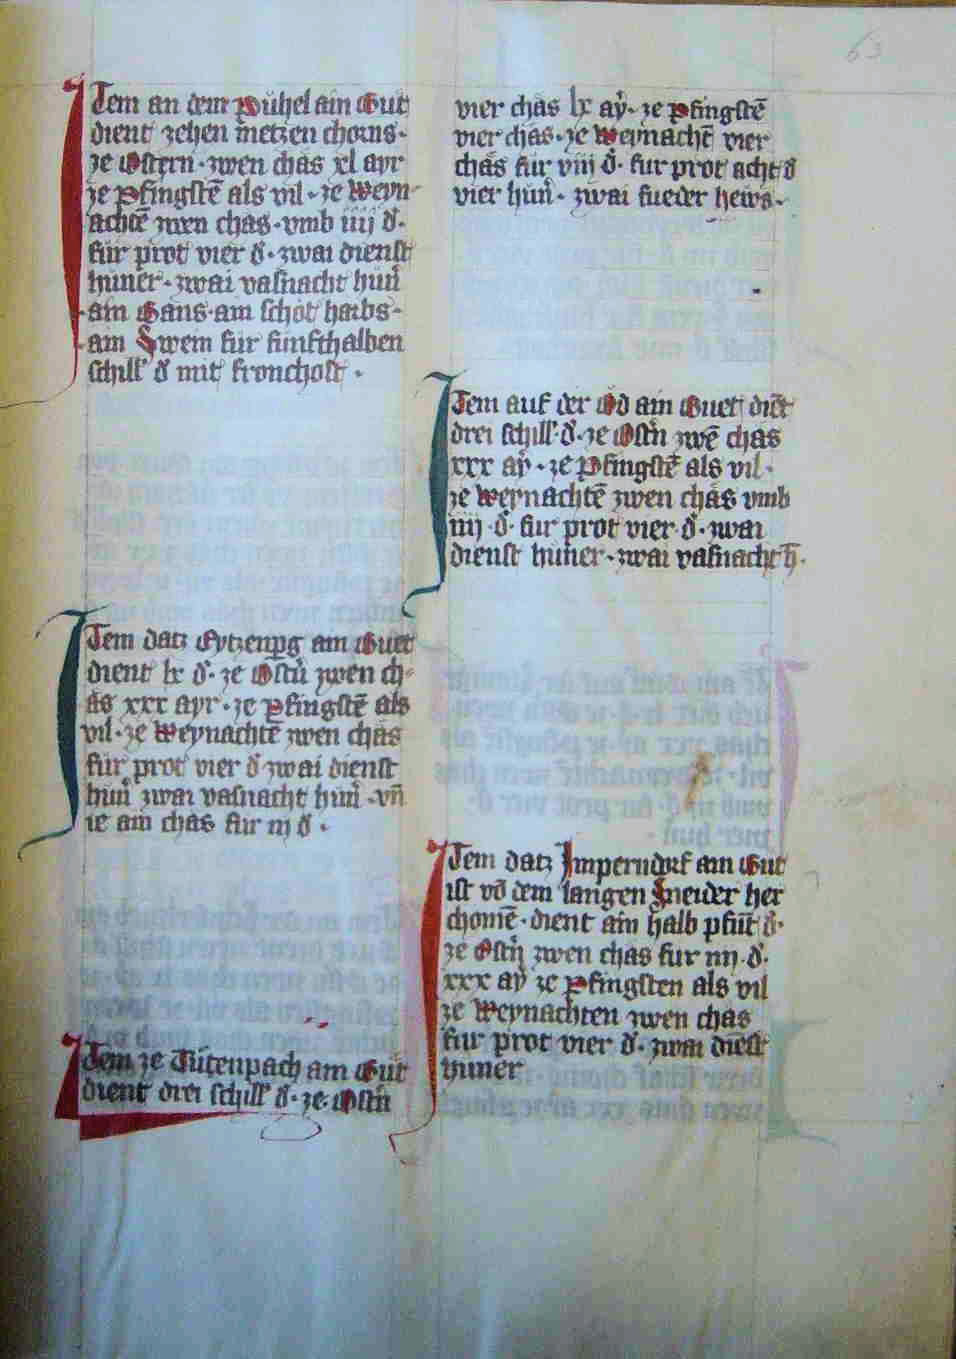 Item an dem Pühel ain Gut
dient zehen metzen chorns·
ze Ostern · zwen chas xl ayr
ze Pfingstē als vil · ze Weyn-
achtē zwen chas · vmb iiij d·
für prot vier d · zwai dienst
hüner · zwai vasnacht hün
ain Gans · ain schot harbs·
ain Swein für fünfthalben
schill d mit fronchost ·
Item datz Eytzenpg ain Guet
dient lx d· ze Ostn̄ zwen ch-
äs xxx ayr · ze Pfingstē als
vil · ze Weynachtē zwen chäs
für prot vier d zwai dienst
hün̄ zwai vasnacht hün̄ · vn̄
ie ain chas für iij d ·
Item ze Tütenpach ain Güt
dient drei schill d · ze Ostn̄
63
vier chäs lx aẏ · ze Pfingstē
vier chäs · ze Weynachtē vier
chäs für viij d· für prot acht d
vier hün̄ · zwai fueder hews·
Item auf der Öd ain Guet diēt
drei schill · d · ze Ostn̄ zwē chäs
xxx aẏ · ze Pfingstē als vil ·
ze Weynachtē zwen chäs vmb
iiij · d· für prot vier · d· zwai
dienst hüner · zwai vasnacht h̄ ·
Item datz Imperndorf ain Gut
ist vō dem langen Sneider her
chomē · dient ain halb pfūt d·
ze Ostn̄ zwen chas für iiij · d·
xxx aẏ ze Pfingsten als vil
ze Weynachten zwen chäs
für prot vier d· zwai diēst
hüner